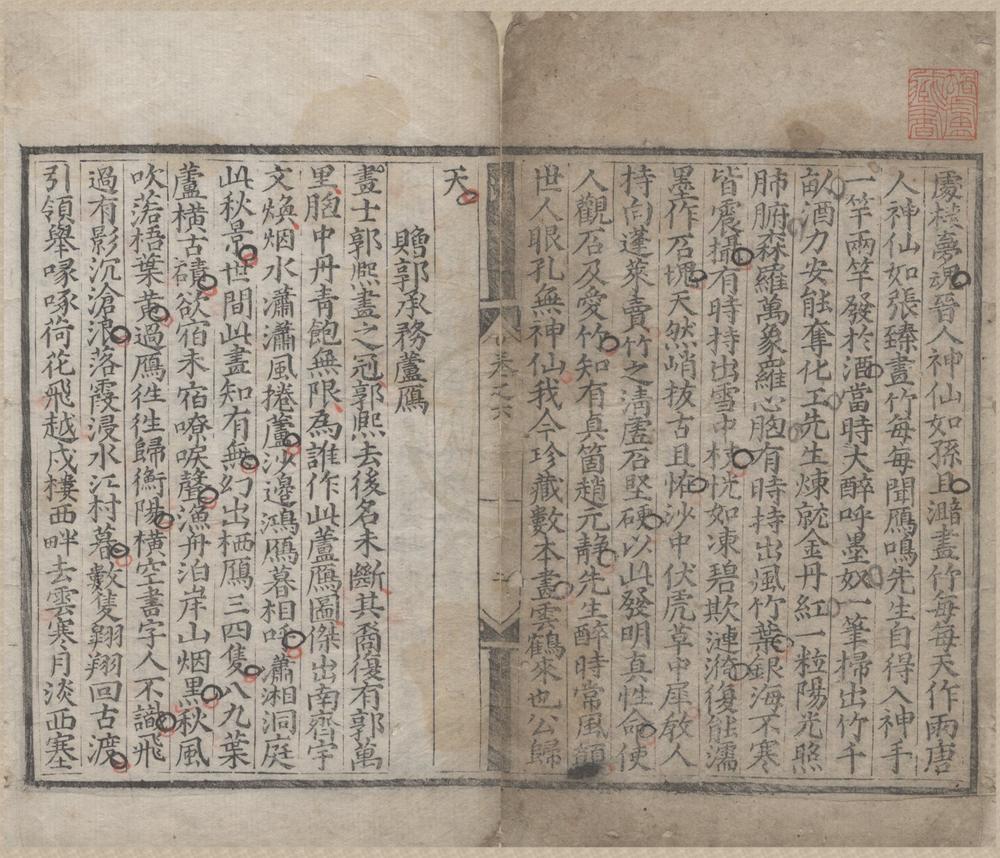 處桂夢魂晉人神仙如孫且濳畫竹每每天作雨唐
人神仙如張臻畫竹每每聞鴈鳴先生自得入神手
一竿兩竿發於酒當時大醉呼墨奴一筆掃出竹千
畒酒力安能奪化工先生煉就金丹紅一粒陽光照
肺腑森羅萬象羅心胞有時持出風竹葉銀海不寒
皆震攝有時持出雪中枝恍如凍碧欺漣漪復能濡
墨作石塊天然峭拔古且恠沙中伏虎草中犀敎人
持向蓬萊賣竹之淸虛石堅硬以此發明真性命使
人觀石及愛竹知有真箇趙元靜先生醉時常風顛
世人眼孔無神仙我今珍藏數本畫雲鶴來也公歸
卷之六
天
贈郭承務蘆鴈
畫士郭熈畫之冠郭熈去後名未斷其裔復有郭萬
里胸中丹青飽無限為誰作此蘆鴈圖傑出南齊宇
文煥烟水瀟瀟風捲蘆沙邊鴻鴈暮相呼瀟湘洞庭
此秋景世間此畫知有無幻出栖鴈三四隻八九葉
蘆橫古磧欲宿未宿嘹唳聲漁舟泊岸山烟黑秋風
吹落梧葉黃過鴈徃徃歸衡陽橫空書字人不識飛
過有影沉滄浪落霞浸水江村暮數隻翱翔回古渡
引領舉喙啄荷花飛越戍樓西畔去雲寒月淡西塞